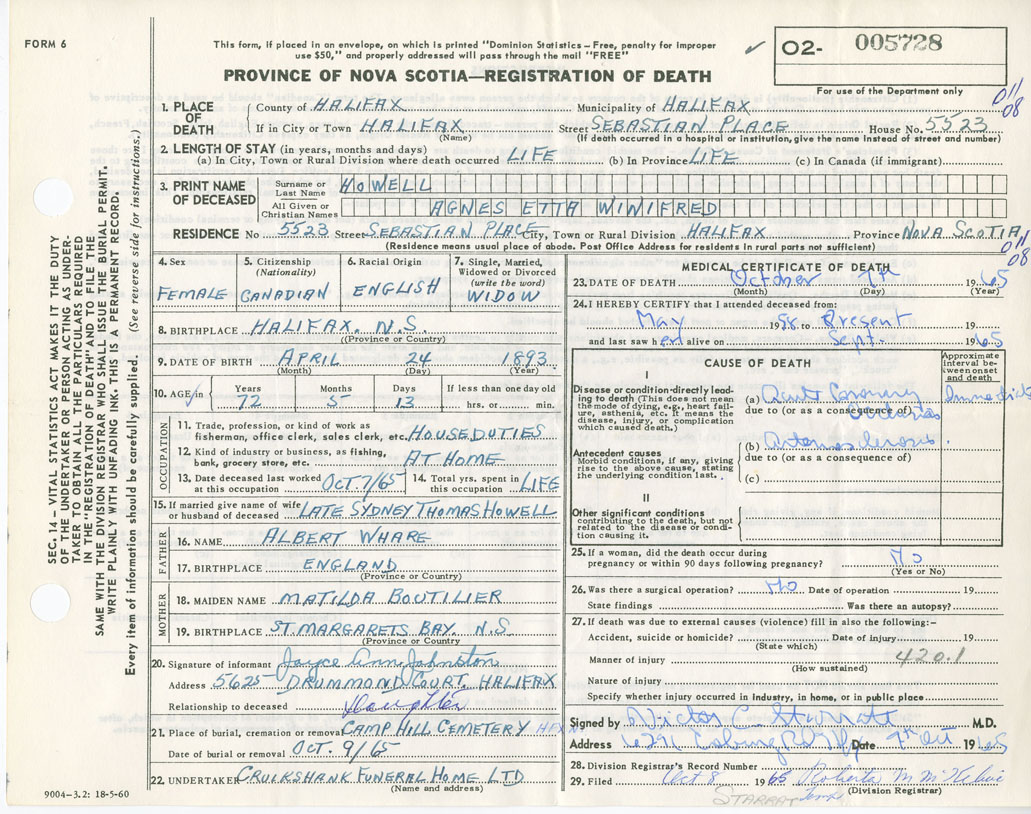 FORM 6
This form, if placed in an envelope, on which is printed "Dominion Statistics – Free, penalty for improper
use $50," and properly addressed will pass through the mail "FREE"
✓ 02- 005728
For use of the Department only
PROVINCE OF NOVA SCOTIA—REGISTRATION OF DEATH
011
08
1. PLACE OF DEATH
County of HALIFAX Municipality of HALIFAX
If in City or Town HALIFAX Street SEBASTIAN PLACE House No. 5523
(Name) (If death occurred in a hospital or institution, give the name instead of street and number)
2. LENGTH OF STAY (in years, months and days)
(a) In City, Town or Rural Division where death occurred LIFE (b) In Province LIFE (c) In Canada (if immigrant)
3. PRINT NAME OF DECEASED
Surname or Last Name HOWELL
All Given or Christian Names AGNES ETTA WINIFRED
RESIDENCE No 5523 Street SEBASTIAN PLACE City, Town or Rural Division HALIFAX Province NOVA SCOTIA
(Residence means usual place of abode. Post Office Address for residents in rural parts not sufficient)
011
08
4. Sex FEMALE
5. Citizenship (Nationality) CANADIAN
6. Racial Origin ENGLISH
7. Single, Married, Widowed or Divorced (write the word) WIDOW
8. BIRTHPLACE HALIFAX. N.S.
(Province or Country)
9. DATE OF BIRTH APRIL 24 1893
(Month) (Day) (Year)
10. AGE in Years 72 Months 5 Days 13 If less than one day old hrs. or min.
OCCUPATION
11. Trade, profession, or kind of work as
fisherman, office clerk, sales clerk, etc. HOUSEDUTIES
12. Kind of industry or business, as fishing,
bank, grocery store, etc. AT HOME
13. Date deceased last worked
at this occupation OCT. 7/65
14. Total yrs. spent in
this occupation LIFE
15. If married give name of wife
or husband of deceased LATE SYDNEY THOMAS HOWELL
FATHER
16. NAME ALBERT WHARE
17. BIRTHPLACE ENGLAND
(Province or Country)
MOTHER
18. MAIDEN NAME MATILDA BOUTILIER
19. BIRTHPLACE ST. MARGARETS BAY. N.S
(Province or Country)
20. Signature of informant Joyce Ann Johnston
Address 5625 DRUMMOND COURT. HALIFAX
Relationship to deceased Daughter
21. Place of burial, cremation or removal CAMP HILL CEMETERY HFX
Date of burial or removal OCT. 9/65
22. UNDERTAKER CRUIKSHANK FUNERAL HOME LTD
(Name and address)
MEDICAL CERTIFICATE OF DEATH
23. DATE OF DEATH October 7th 1965
(Month) (Day) (Year)
24. I HEREBY CERTIFY that I attended deceased from:
May 1958 to Present 19
and last saw her alive on Sept. 1965
CAUSE OF DEATH
Approximate interval between onset and death
I
Disease or condition directly leading to death (This does not mean the mode of dying, e.g., heart failure, asthenia, etc. It means the disease, injury, or complication which caused death.)
(a) Acute Coronary
due to (or as a consequence of)
Antecedent causes
Morbid conditions, if any, giving rise to the above cause, stating the underlying condition last.
(b) Arteriosclerosis.
due to (or as a consequence of)
(c)
II
Other significant conditions
contributing to the death, but not related to the disease or condition causing it.
25. If a woman, did the death occur during
pregnancy or within 90 days following pregnancy? No
(Yes or No)
26. Was there a surgical operation? No Date of operation 19
State findings Was there an autopsy?
27. If death was due to external causes (violence) fill in also the following:–
Accident, suicide or homicide? Date of injury 19
(State which)
Manner of injury 420.1
(How sustained)
Nature of injury
Specify whether injury occurred in industry, in home, or in public place
Signed by Victor C Starratt M.D.
Address 6291 Coburg Rd Hfx Date 7th Oct 1965
28. Division Registrar's Record Number
29. Filed Oct 8 1965 Roberta M McKelvie
STARRATT Temp (Division Registrar)
9004-3.2: 18-5-60
SEC. 14 – VITAL STATISTICS ACT MAKES IT THE DUTY
OF THE UNDERTAKER OR PERSON ACTING AS UNDER-
TAKER TO OBTAIN ALL THE PARTICULARS REQUIRED
IN THE "REGISTRATION OF DEATH" AND TO FILE THE
SAME WITH THE DIVISION REGISTRAR WHO SHALL ISSUE THE BURIAL PERMIT.
WRITE PLAINLY WITH UNFADING INK. THIS IS A PERMANENT RECORD.
Every item of information should be carefully supplied. (See reverse side for instructions.)